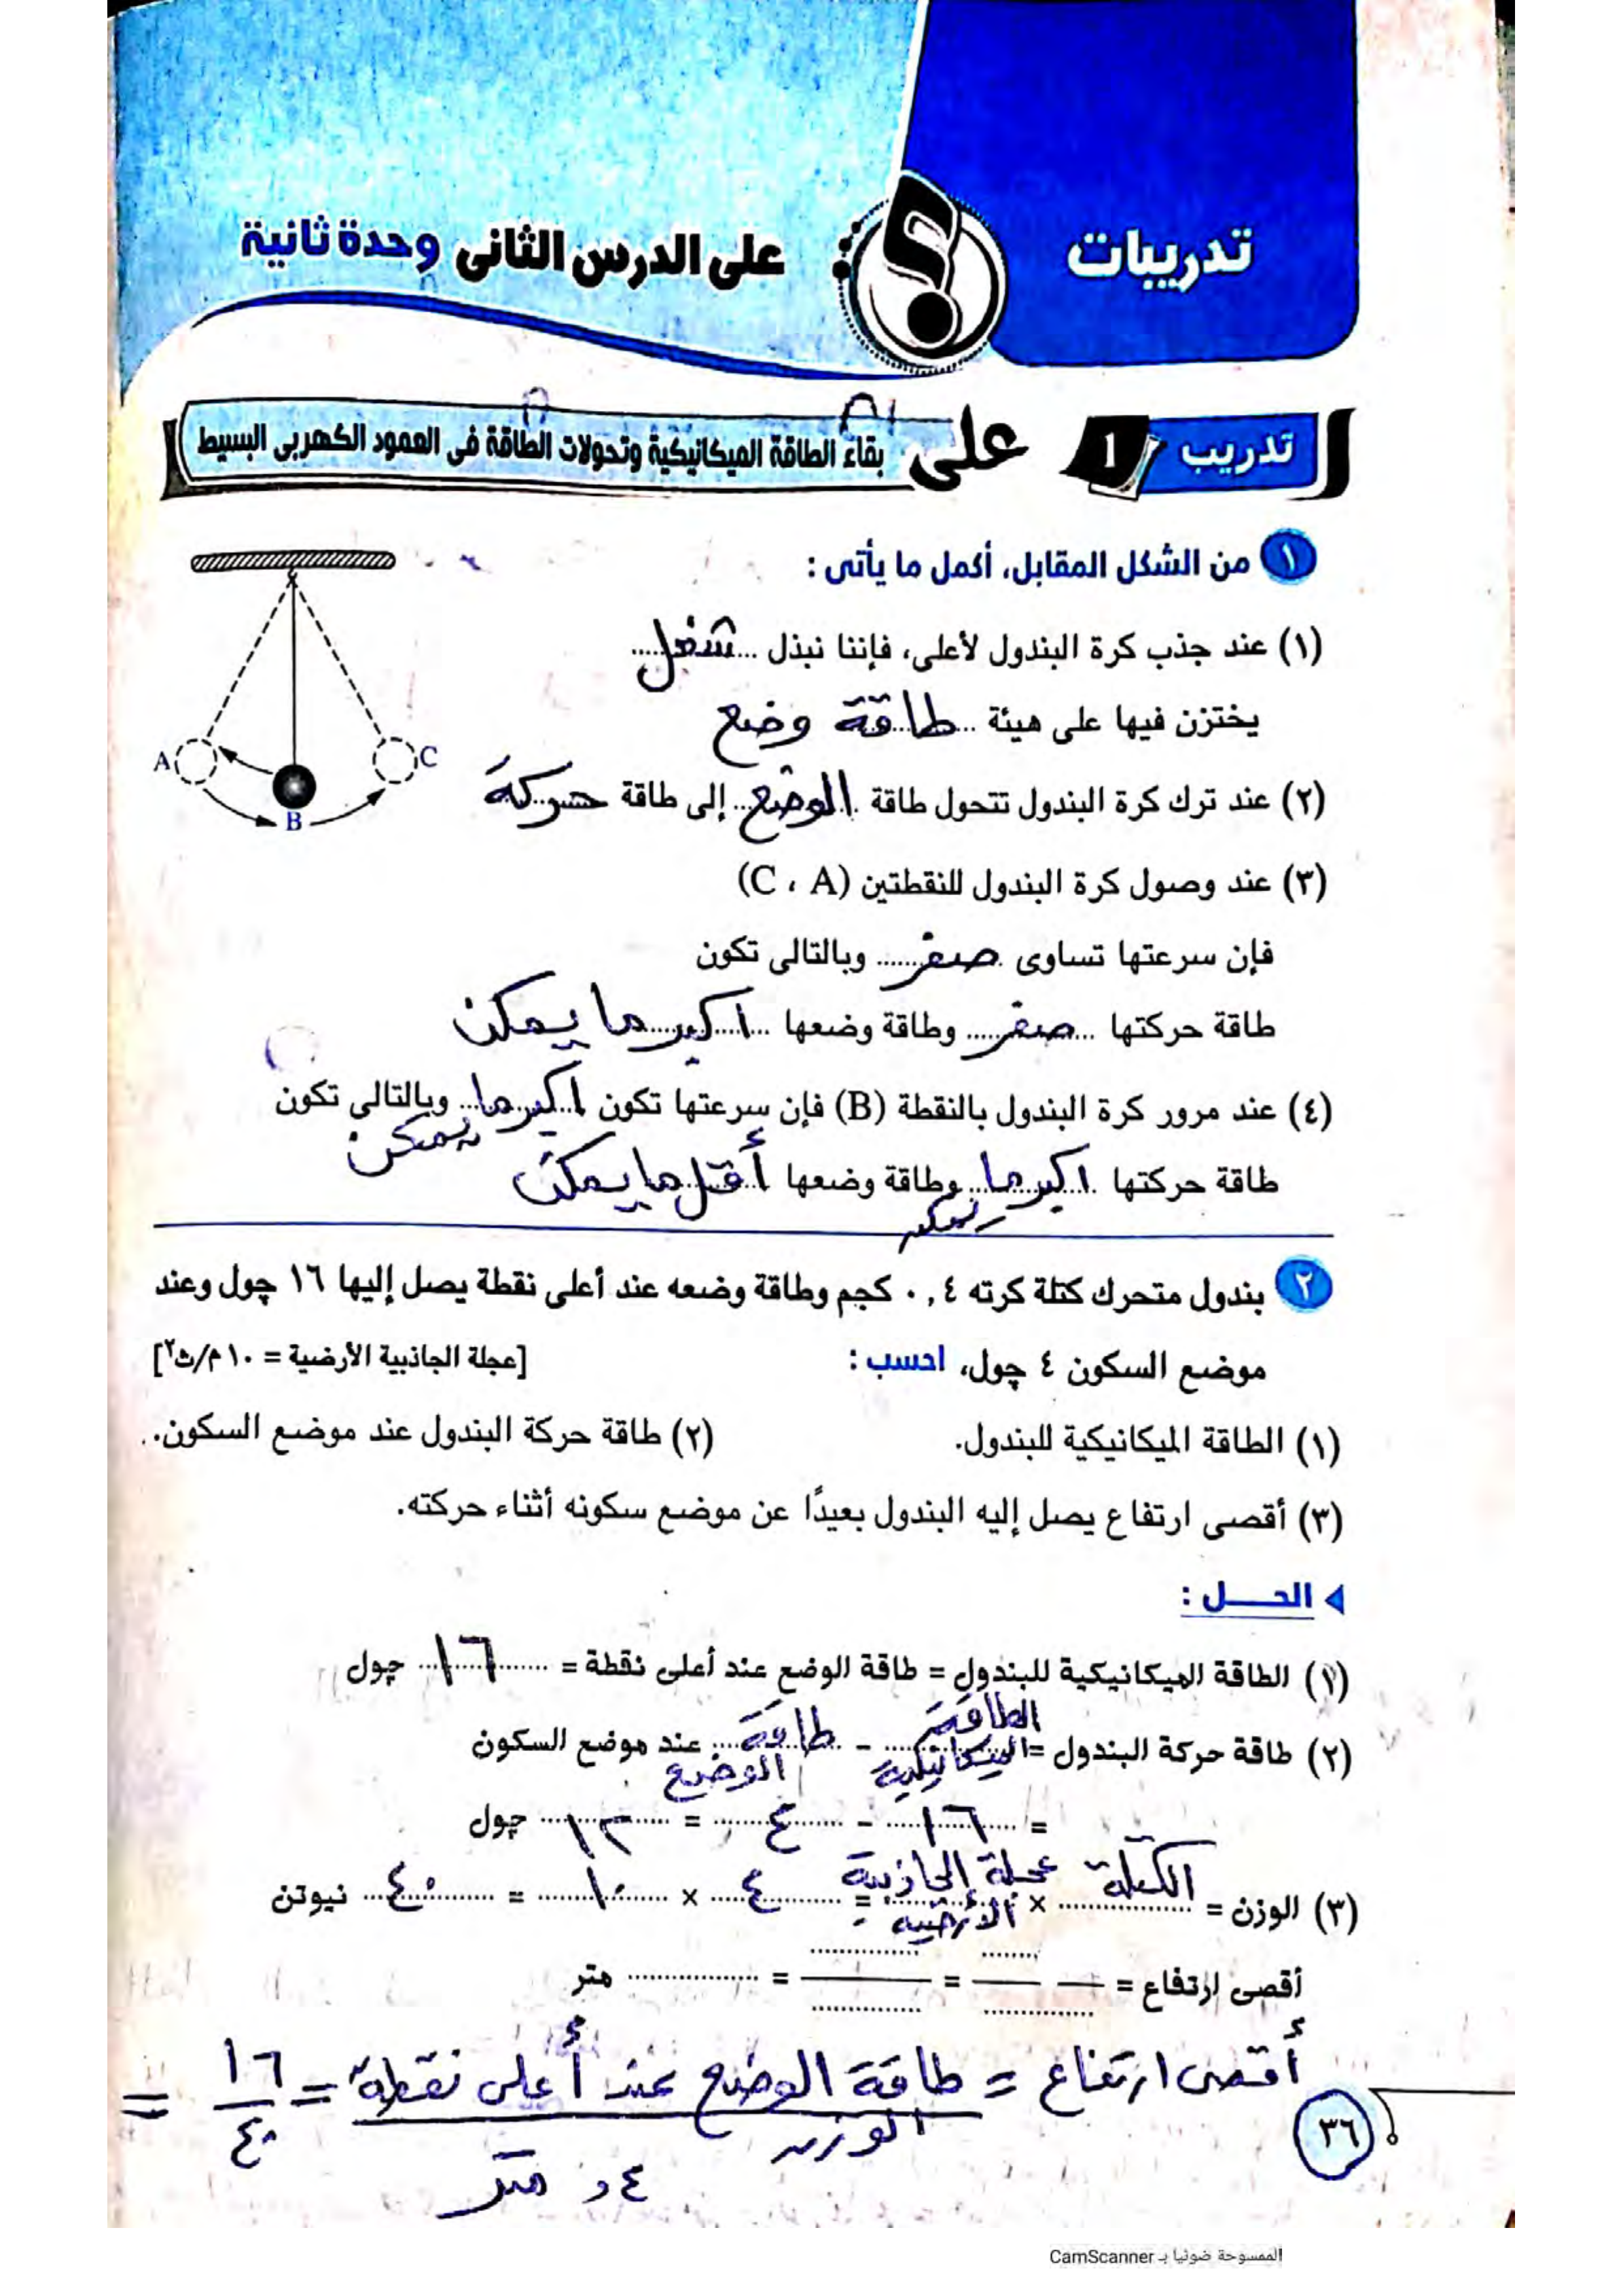 تدريبات
على الدرس الثانى وحدة ثانية
تدريب ١ على بقاء الطاقة الميكانيكية وتحولات الطاقة فى العمود الكهربى البسيط
١ من الشكل المقابل، أكمل ما يأتى :
(١) عند جذب كرة البندول لأعلى، فإننا نبذل شغل
يختزن فيها على هيئة طاقة وضع
(٢) عند ترك كرة البندول تتحول طاقة الوضع إلى طاقة حركة
(٣) عند وصول كرة البندول للنقطتين (C ، A)
فإن سرعتها تساوى صفر وبالتالى تكون
طاقة حركتها صفر وطاقة وضعها اكبر ما يمكن
(٤) عند مرور كرة البندول بالنقطة (B) فإن سرعتها تكون اكبر ما يمكن وبالتالى تكون
طاقة حركتها اكبر ما يمكن وطاقة وضعها أقل ما يمكن
A
B
C
٢ بندول متحرك كتلة كرته ٠,٤ كجم وطاقة وضعه عند أعلى نقطة يصل إليها ١٦ چول وعند
موضع السكون ٤ چول، احسب : [عجلة الجاذبية الأرضية = ١٠ م/ث٢]
(١) الطاقة الميكانيكية للبندول. (٢) طاقة حركة البندول عند موضع السكون.
(٣) أقصى ارتفاع يصل إليه البندول بعيدًا عن موضع سكونه أثناء حركته.
الحـــل :
(١) الطاقة الميكانيكية للبندول = طاقة الوضع عند أعلى نقطة = ١٦ چول
(٢) طاقة حركة البندول = الطاقة الميكانيكية - طاقة الوضع عند موضع السكون
= ١٦ - ٤ = ١٢ چول
(٣) الوزن = الكتلة × عجلة الجاذبية الأرضية = ٤ × ١٠ = ٤٠ نيوتن
أقصى ارتفاع = = = متر
أقصى ارتفاع = طاقة الوضع عند أعلى نقطة / الوزن = ١٦ / ٤٠ =
٤, متر
٣٦
الممسوحة ضوئيا بـ CamScanner